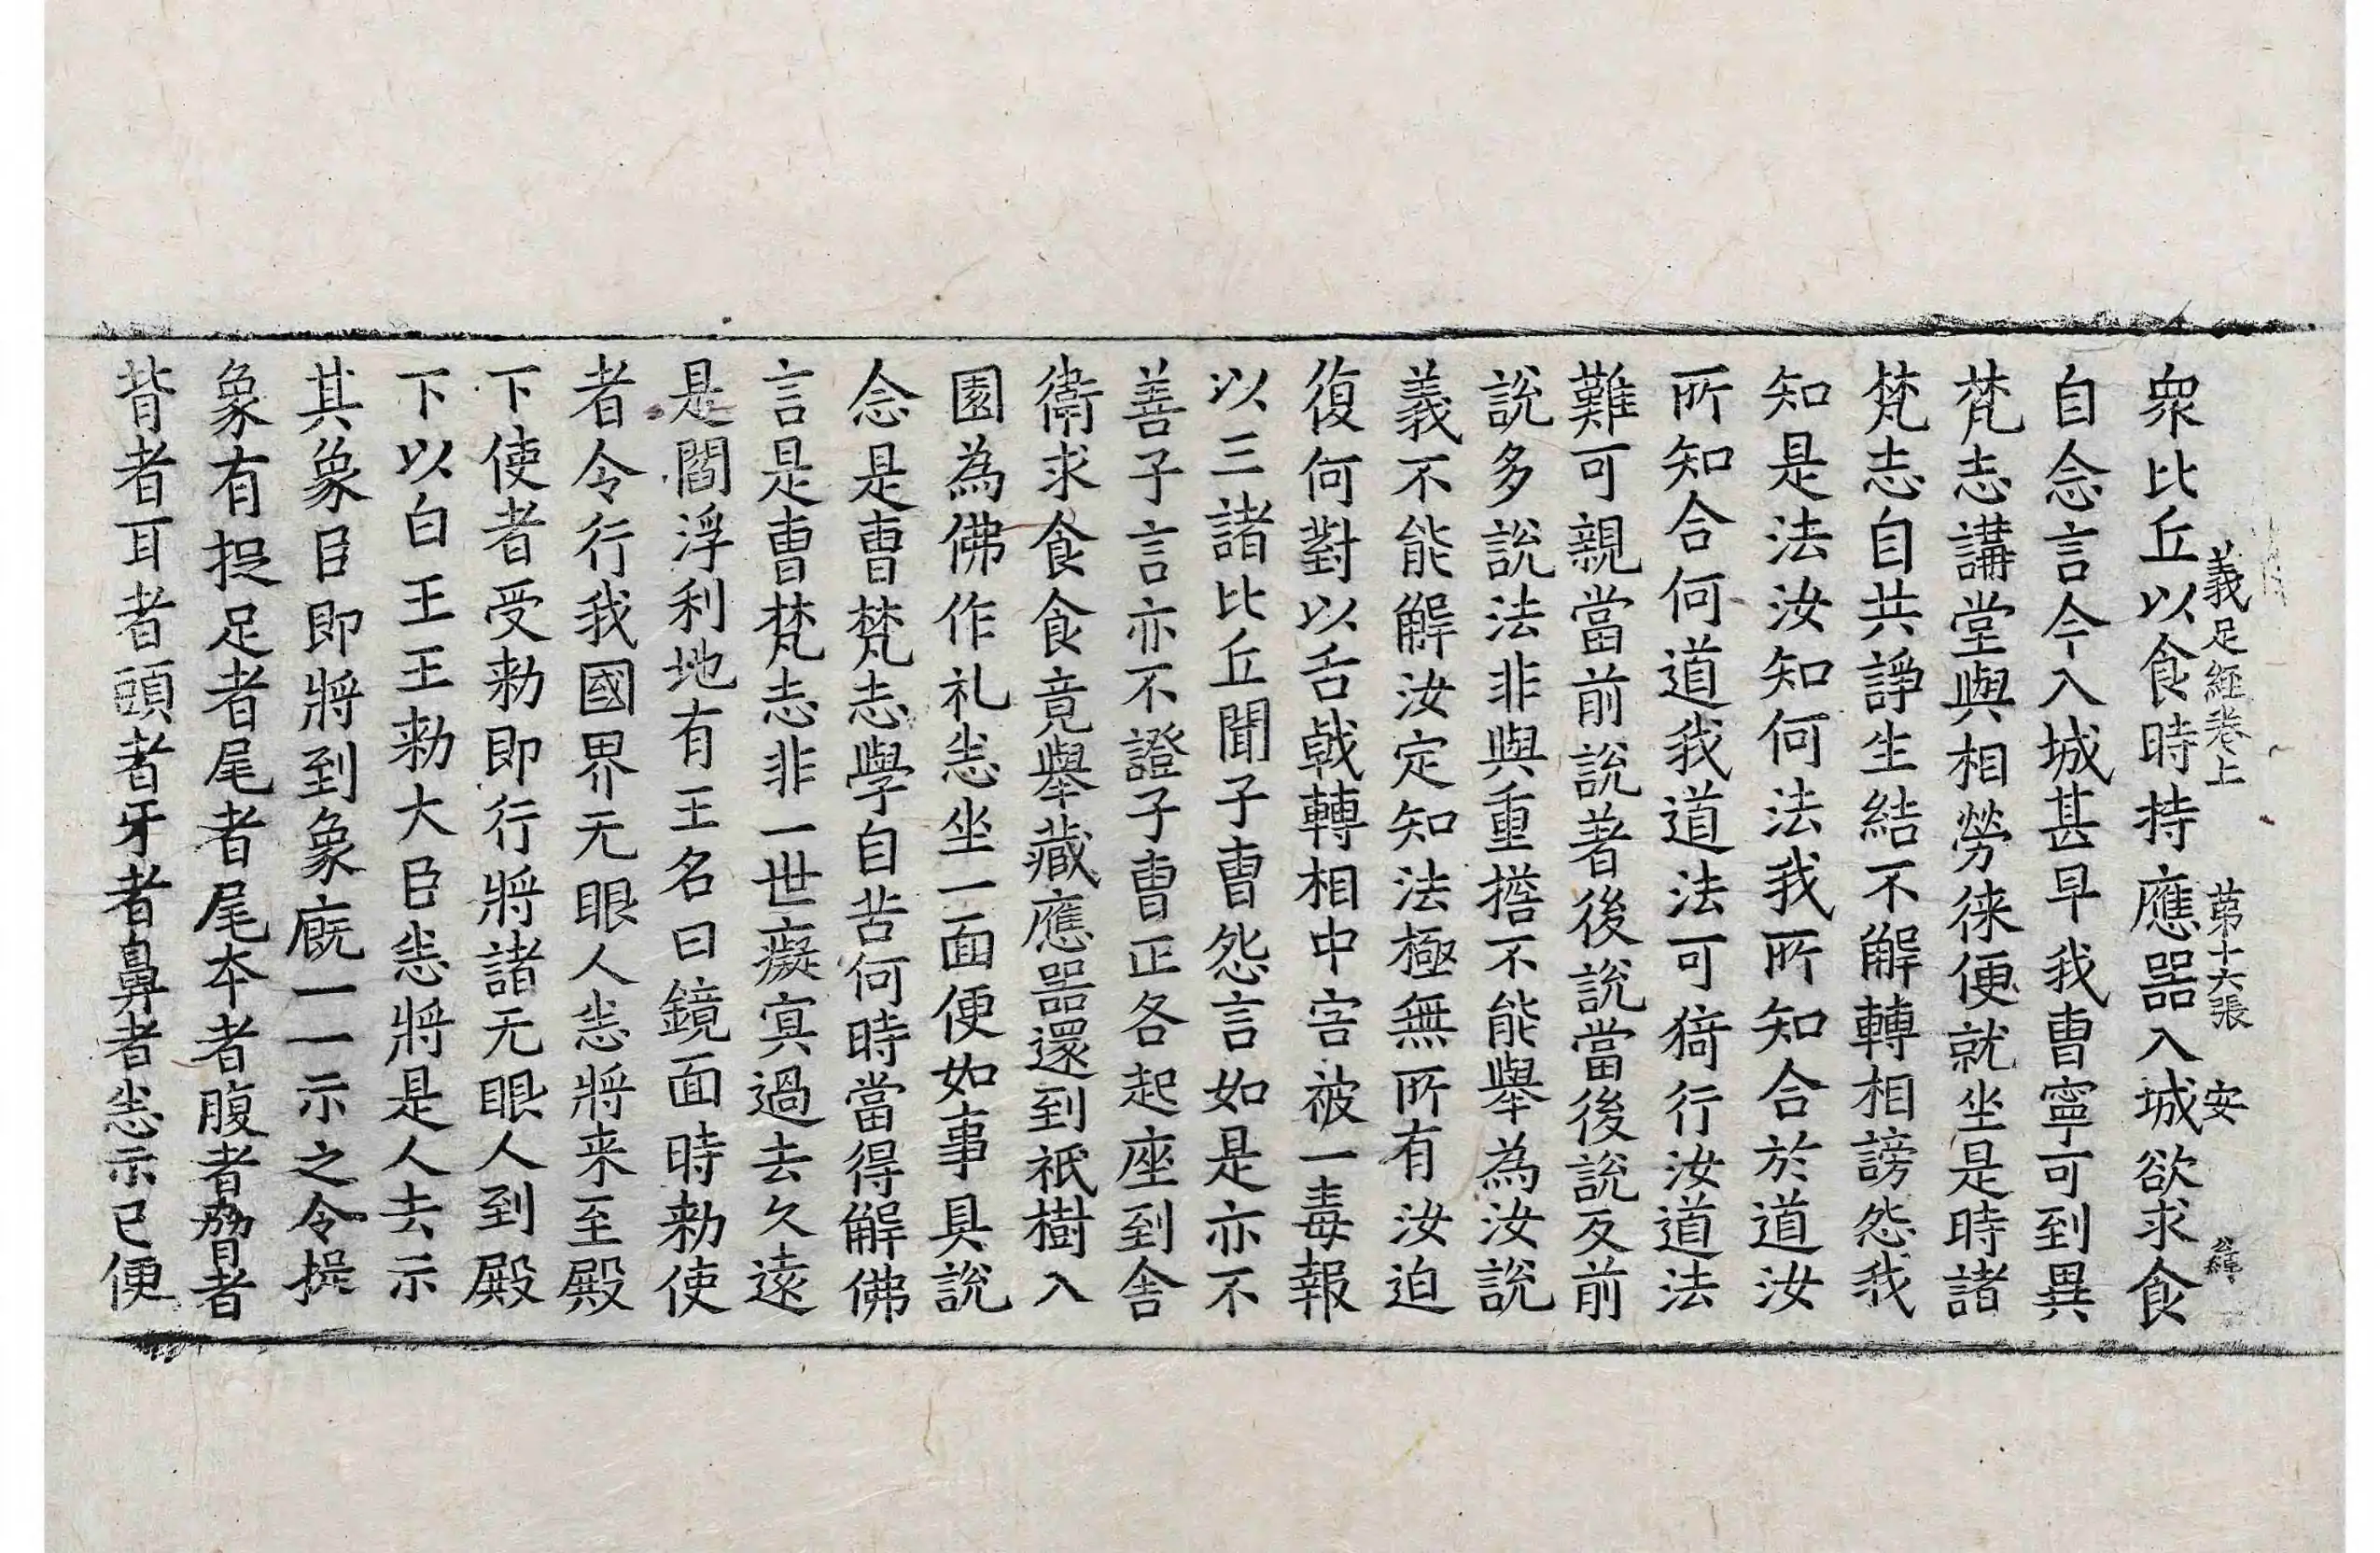 義足經卷上 第十六張 安
衆比丘以食時持應器入城欲求食
自念言今入城甚早我曺寧可到異
梵志講堂與相勞徕便就坐是時諸
梵志自共諍生結不解轉相謗怨我
知是法汝知何法我所知合於道汝
所知合何道我道法可猗行汝道法
難可親當前說著後說當後說反前
說多說法非與重擔不能舉為汝說
義不能解汝定知法極無所有汝迫
復何對以舌戟轉相中害被一毒報
以三諸比丘聞子曺怨言如是亦不
善子言亦不證子曺正各起座到舍
衛求食食竟舉藏應器還到祇樹入
園為佛作礼恙坐一面便如事具說
念是曺梵志學自苦何時當得解佛
言是曺梵志非一世癡冥過去久遠
是閻浮利地有王名曰鏡面時勑使
者令行我國界无眼人恙將来至殿
下使者受勑即行將諸无眼人到殿
下以白王王勑大臣恙將是人去示
其象臣即將到象廐一一示之令捉
象有捉足者尾者尾本者腹者脅者
背者耳者頭者牙者鼻者恙示已便